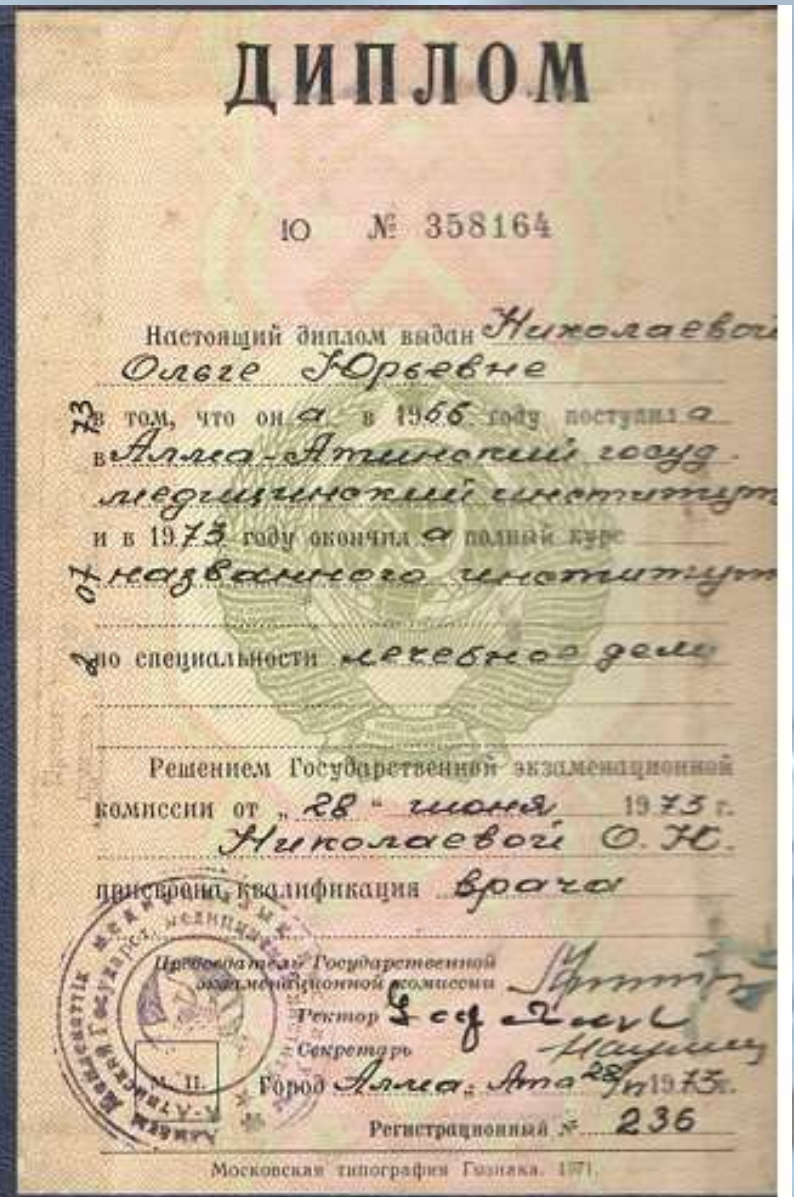 ДИПЛОМ
Ю № 358164
Настоящий диплом выдан Николаевой
Ольге Юрьевне
в том, что он а в 1966 году поступил а
в Алма-Атинский госуд.
медицинский институт
и в 1973 году окончил а полный курс
названного институт
по специальности лечебное дело
Решением Государственной экзаменационной
комиссии от „ 28 “ июня 1973 г.
Николаевой О. Ю.
присвоена квалификация врача
Председатель Государственной
экзаменационной комиссии
Ректор
Секретарь
М. П.
Город Алма-Ата 28/VI 1973г.
Регистрационный № 236
Московская типография Гознака. 1971.
2 07 73